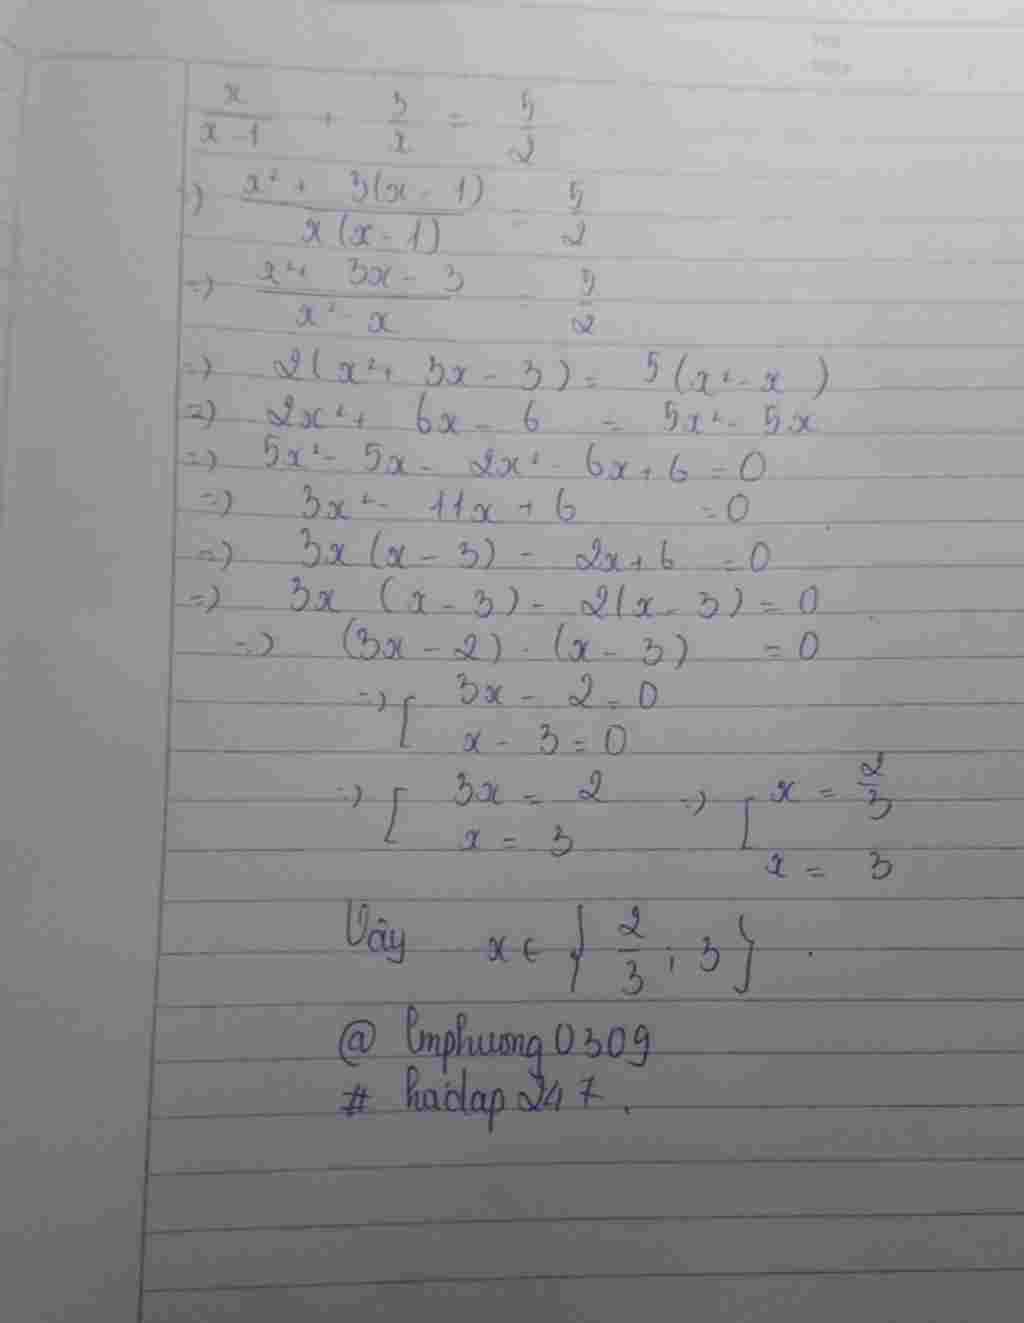 x/(x - 1) + 3/x = 5/2
=) (x² + 3(x - 1))/(x(x - 1)) = 5/2
=) (x² + 3x - 3)/(x² - x) = 5/2
=) 2(x² + 3x - 3) = 5(x² - x)
=) 2x² + 6x - 6 = 5x² - 5x
=) 5x² - 5x - 2x² - 6x + 6 = 0
=) 3x² - 11x + 6 = 0
=) 3x(x - 3) - 2x + 6 = 0
=) 3x (x - 3) - 2(x - 3) = 0
=) (3x - 2) . (x - 3) = 0
=) [ 3x - 2 = 0
x - 3 = 0
=) [ 3x = 2 =) [ x = 2/3
x = 3 x = 3
Vậy x ∈ { 2/3 ; 3 } .
@ lmphuong0309
# hoidap247.